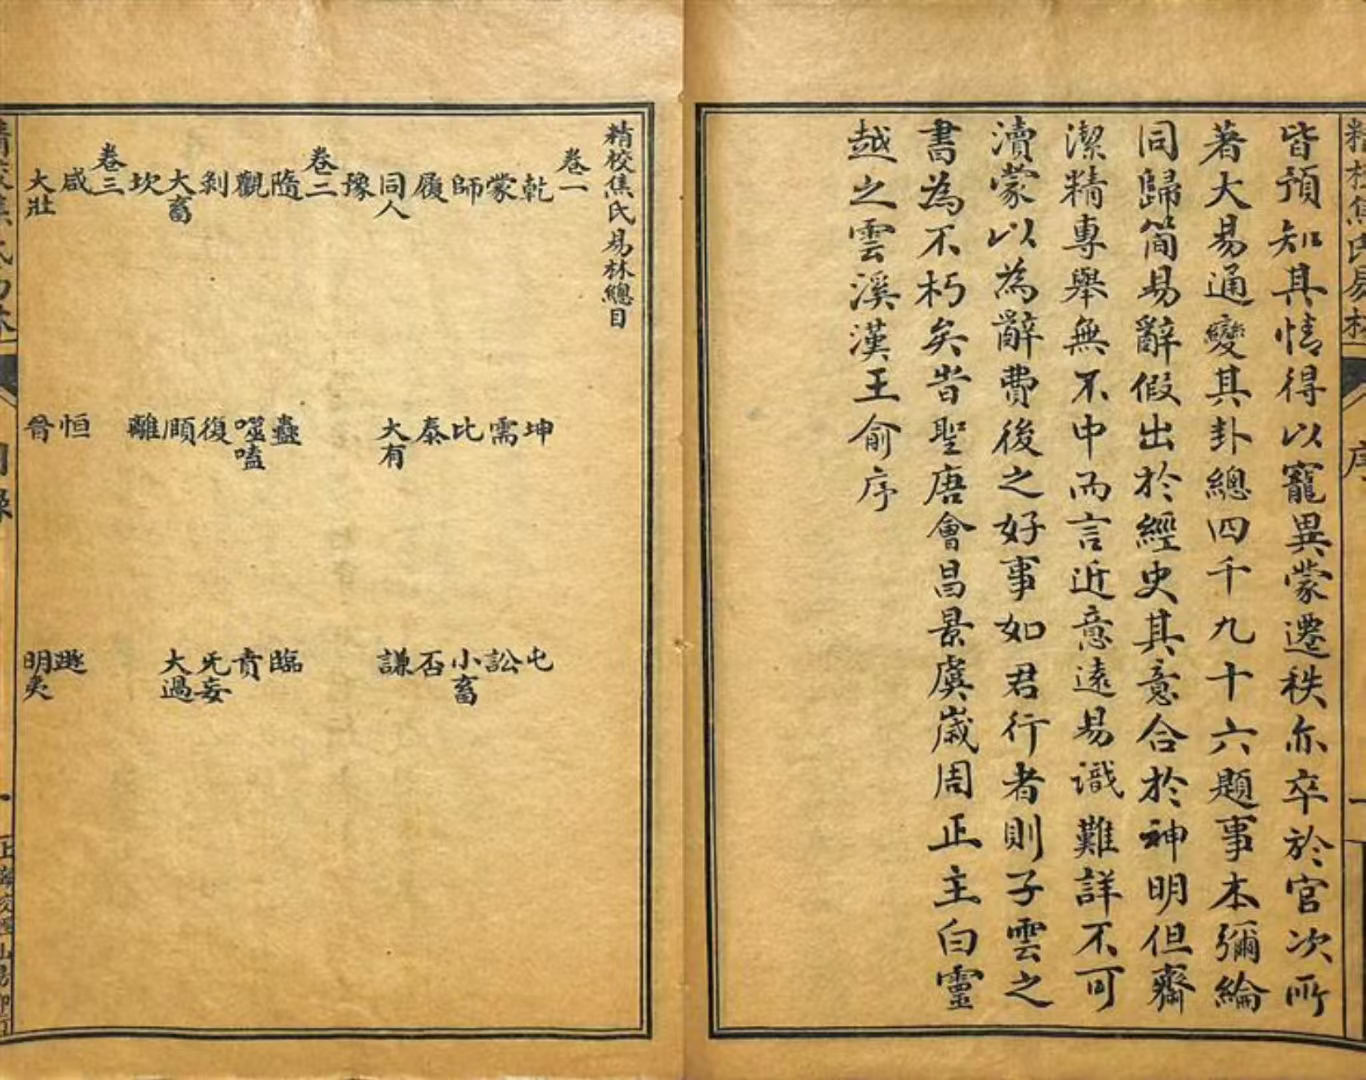 精校焦氏易林
序
皆預知其情得以寵異蒙遷秩亦卒於官次所
著大易通變其卦總四千九十六題事本彌綸
同歸簡易辭假出於經史其意合於神明但齋
潔精專舉無不中而言近意遠易識難詳不可
瀆蒙以為辭費後之好事如君行者則子雲之
書為不朽矣旹聖唐會昌景虞歲周正主白靈
越之雲溪漢王俞序
精校焦氏易林總目
卷一
乾 坤 屯
蒙 需 訟
師 比 小畜
履 泰 否
同人 大有 謙
豫
卷二
隨 蠱 臨
觀 噬嗑 賁
剝 復 无妄
大畜 頤 大過
坎 離
卷三
咸 恒 遯
大壯 晉 明夷
精校焦氏易林
目錄
一
上海校經山房印行